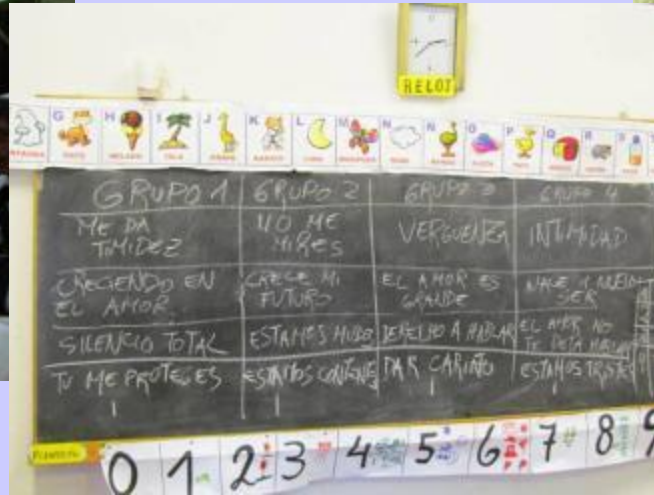 RELOJ
G H I J K L M N Ñ O P Q R S T
GATO HELADO ISLA LUNA
GRUPO 1 GRUPO 2 GRUPO 3 GRUPO 4
ME DA TIMIDEZ
NO ME MIRES
VERGUENZA
INTIMIDAD
CRECIENDO EN EL AMOR
CRECE MI FUTURO
EL AMOR ES GRANDE
NACE SER
SILENCIO TOTAL
ESTAMOS MUDO
DERECHO A HABLAR
EL AMOR NO TE DEJA HABLAR
TU ME PROTEGES
ESTAMOS CONTENTOS
DAR CARIÑO
ESTAMOS TRISTES
0 1 2 3 4 5 6 7 8 9